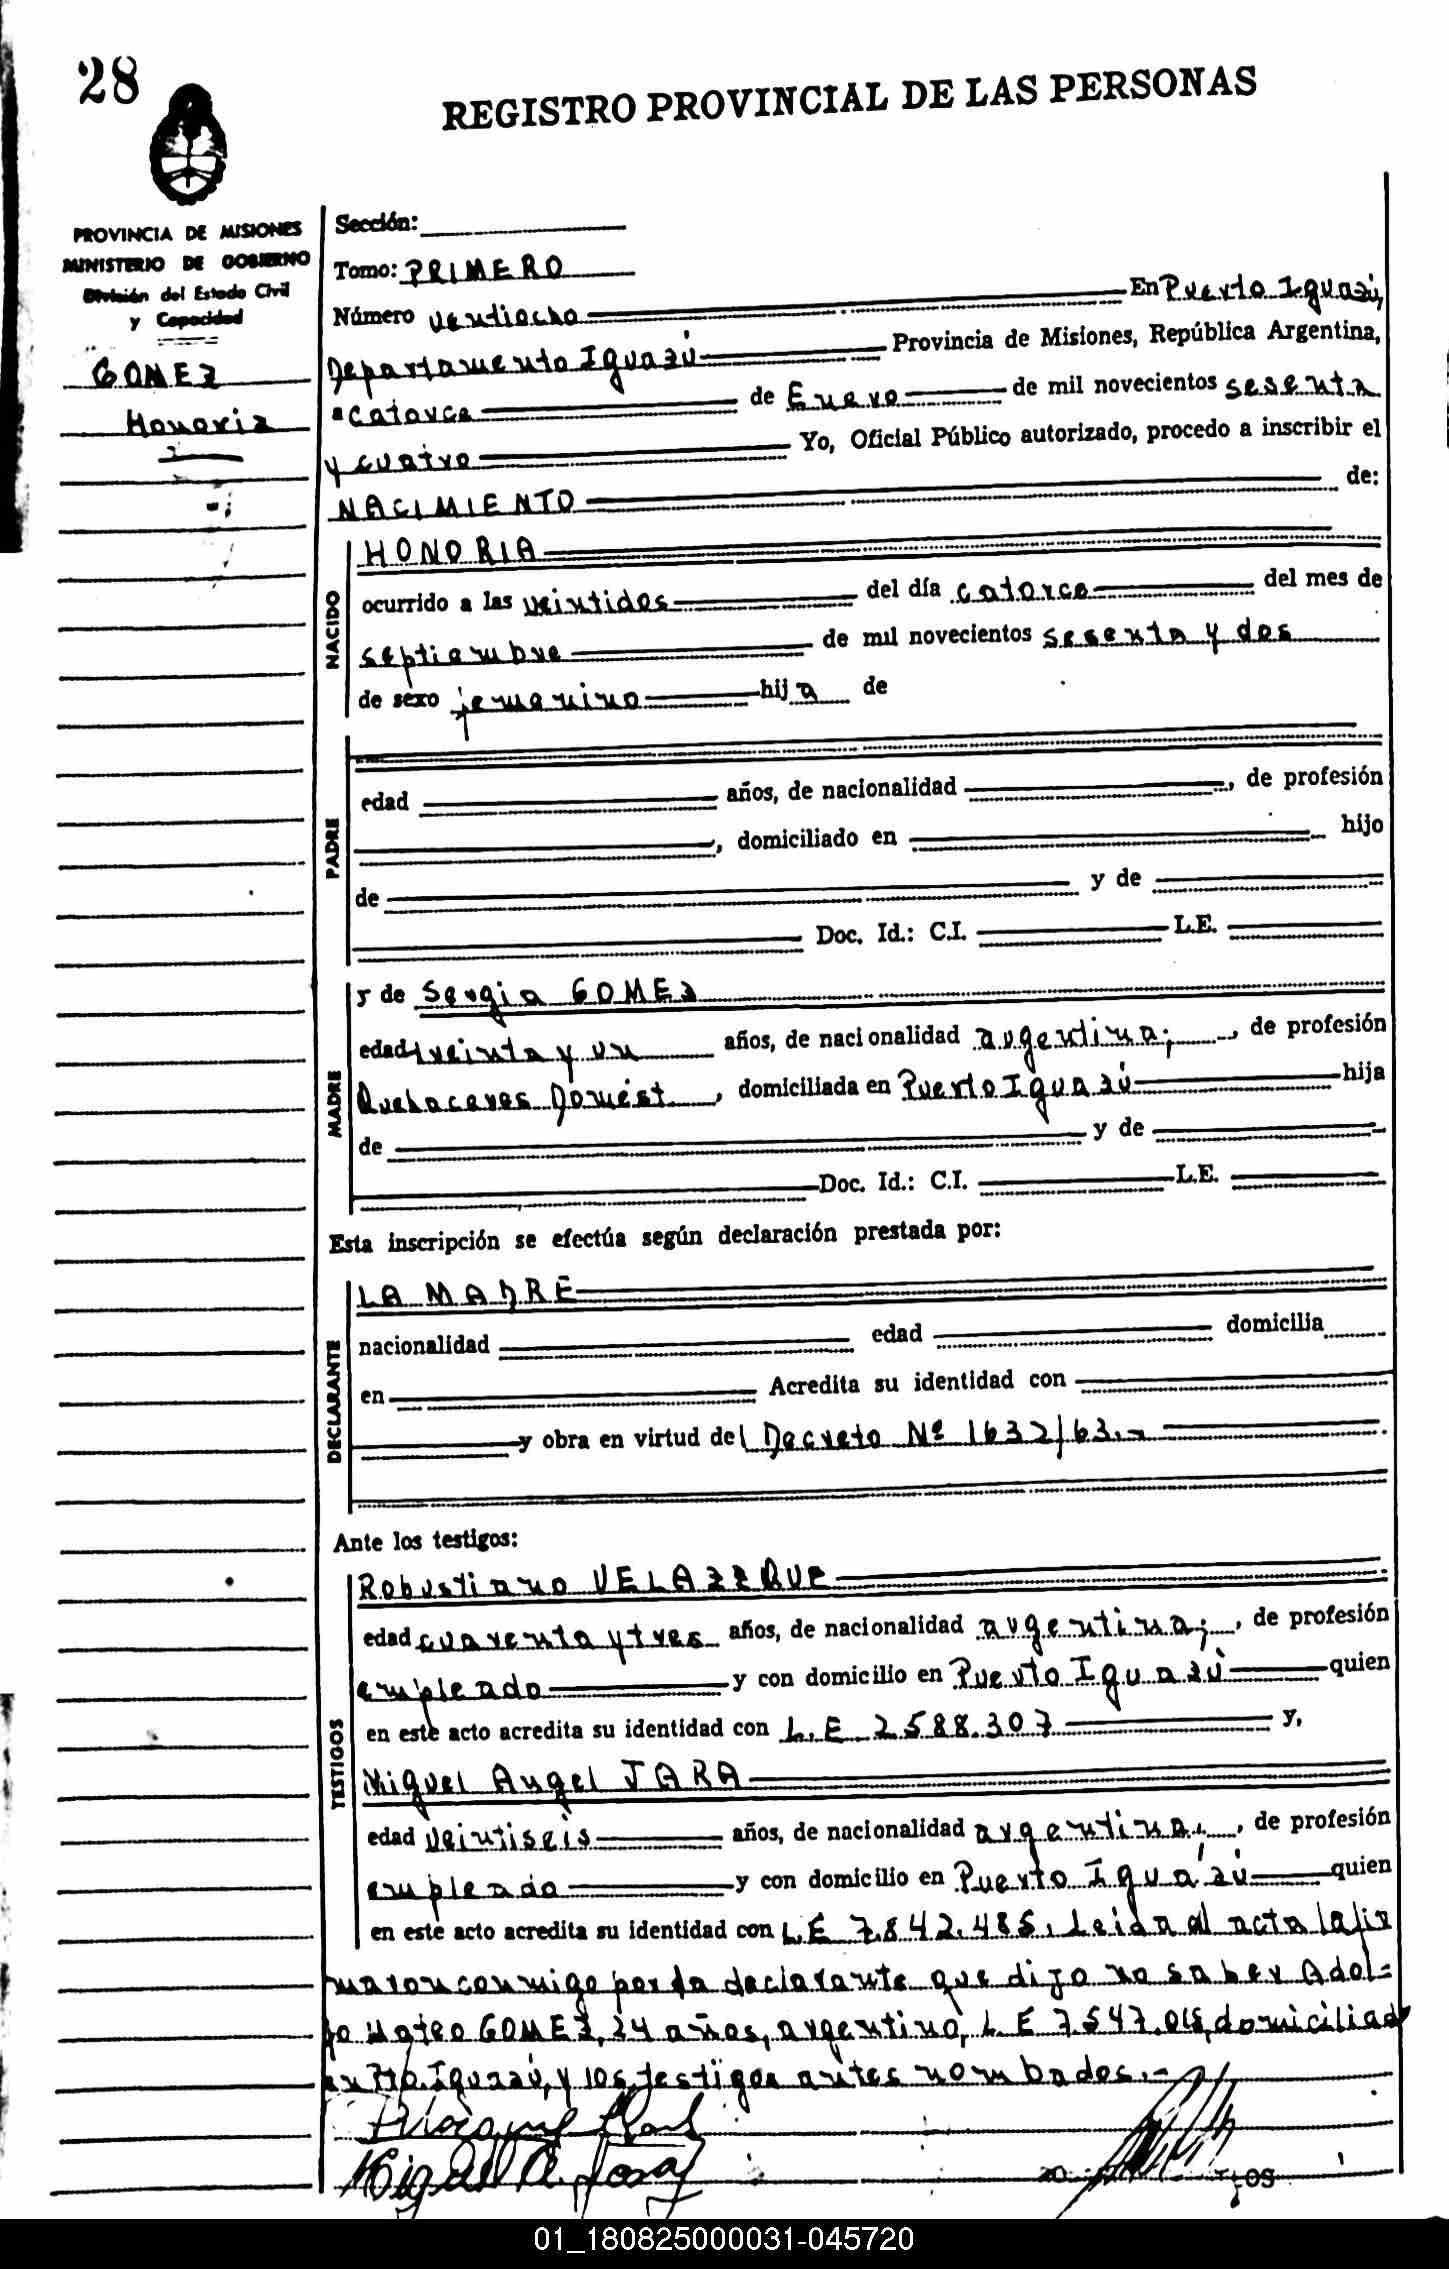 28
REGISTRO PROVINCIAL DE LAS PERSONAS
PROVINCIA DE MISIONES
MINISTERIO DE GOBIERNO
División del Estado Civil
y Capacidad
GOMEZ
Honoria
Sección:
Tomo: PRIMERO
Número ventiocho En Puerto Iguazú,
Departamento Iguazú Provincia de Misiones, República Argentina,
a catorce de Enero de mil novecientos sesenta
y cuatro Yo, Oficial Público autorizado, procedo a inscribir el
NACIMIENTO de:
NACIDO
HONORIA
ocurrido a las veintidos del día catorce del mes de
septiembre de mil novecientos sesenta y dos
de sexo femenino hija de
PADRE
edad años, de nacionalidad , de profesión
, domiciliado en hijo
de y de
Doc. Id.: C.I. L.E.
MADRE
y de Sergia GOMEZ
edad treinta y un años, de nacionalidad argentina; , de profesión
Quehaceres Domést. , domiciliada en Puerto Iguazú hija
de y de
Doc. Id.: C.I. L.E.
Esta inscripción se efectúa según declaración prestada por:
DECLARANTE
LA MADRE
nacionalidad edad domicilia
en Acredita su identidad con
y obra en virtud del Decreto Nº 1632/63.-
Ante los testigos:
TESTIGOS
Robustiano VELAZZQUE
edad cuarenta y tres años, de nacionalidad argentina; , de profesión
empleado y con domicilio en Puerto Iguazú quien
en este acto acredita su identidad con L.E 2588.307 y,
Miguel Angel JARA
edad veintiseis años, de nacionalidad argentina; , de profesión
empleado y con domicilio en Puerto Iguazú quien
en este acto acredita su identidad con L.E 7.842.485. Leida el acta la fir
maron conmigo por la declarante que dijo no saber Adol=
fo Mateo GOMEZ, 24 años, argentino, L.E 7.547.018, domiciliado
en Pto. Iguazú, y los testigos antes nombados.-
Miguel A. Jara
01_180825000031-045720